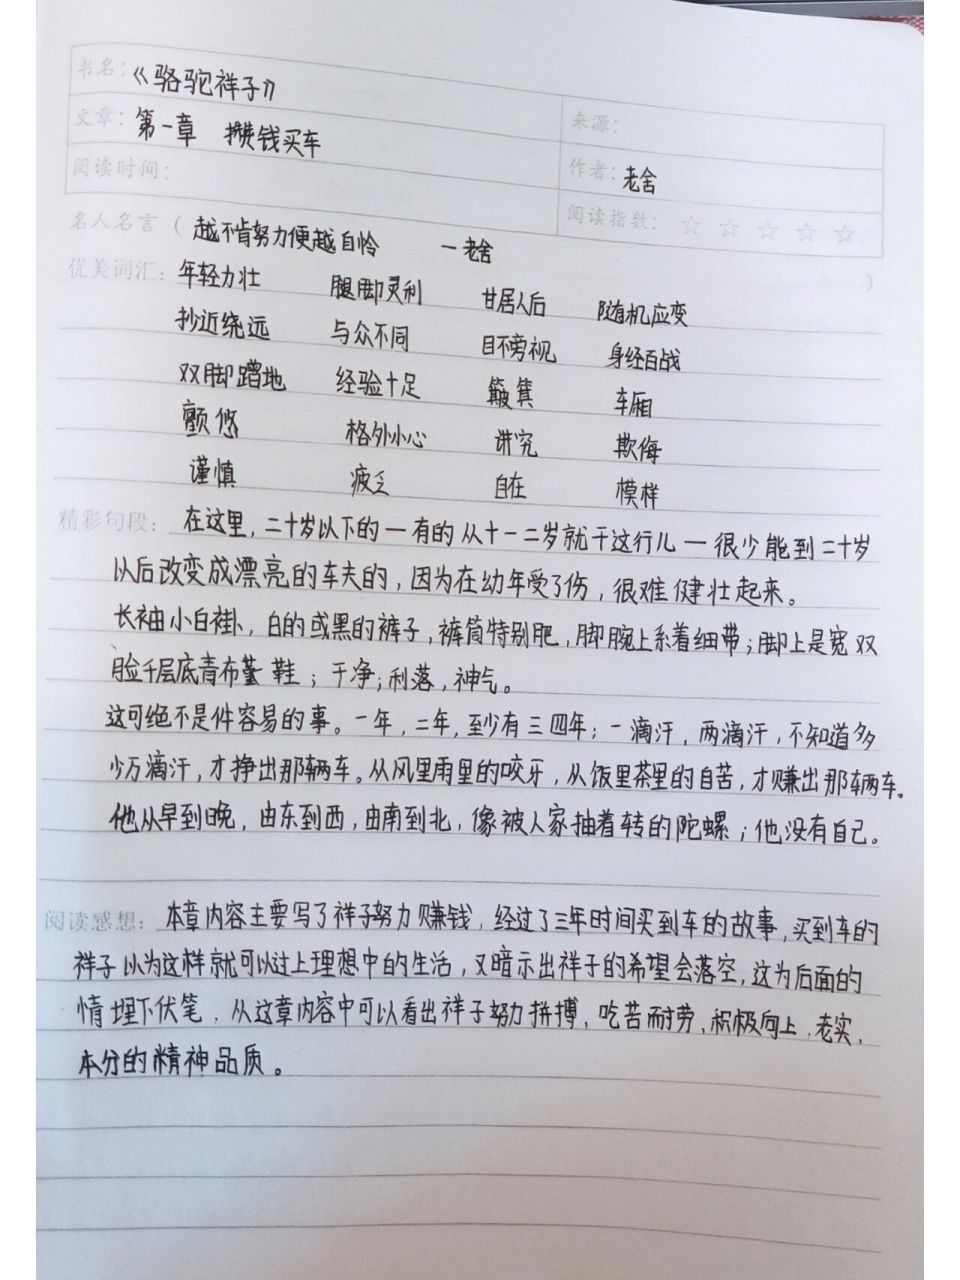 书名：《骆驼祥子》
文章：第一章 攒钱买车 来源：
阅读时间： 作者：老舍
阅读指数：☆ ☆ ☆ ☆ ☆
名人名言（越不肯努力便越自怜 —老舍 ）
优美词汇：年轻力壮 腿脚灵利 甘居人后 随机应变
抄近绕远 与众不同 目不旁视 身经百战
双脚蹭地 经验十足 簸箕 车厢
颤悠 格外小心 讲究 欺侮
谨慎 疲乏 自在 模样
精彩句段：在这里，二十岁以下的一有的从十一二岁就干这行儿一很少能到二十岁
以后改变成漂亮的车夫的，因为在幼年受了伤，很难健壮起来。
长袖小白褂，白的或黑的裤子，裤筒特别肥，脚腕上系着细带；脚上是宽双
脸千层底青布鞋；干净；利落，神气。
这可绝不是件容易的事。一年，二年，至少有三四年；一滴汗，两滴汗，不知道多
少万滴汗，才挣出那辆车。从风里雨里的咬牙，从饭里茶里的自苦，才赚出那辆车。
他从早到晚，由东到西，由南到北，像被人家抽着转的陀螺；他没有自己。
阅读感想：本章内容主要写了祥子努力赚钱，经过了三年时间买到车的故事，买到车的
祥子以为这样就可以过上理想中的生活，又暗示出祥子的希望会落空，这为后面的
情埋下伏笔，从这章内容中可以看出祥子努力拼搏、吃苦耐劳、积极向上、老实，
本分的精神品质。